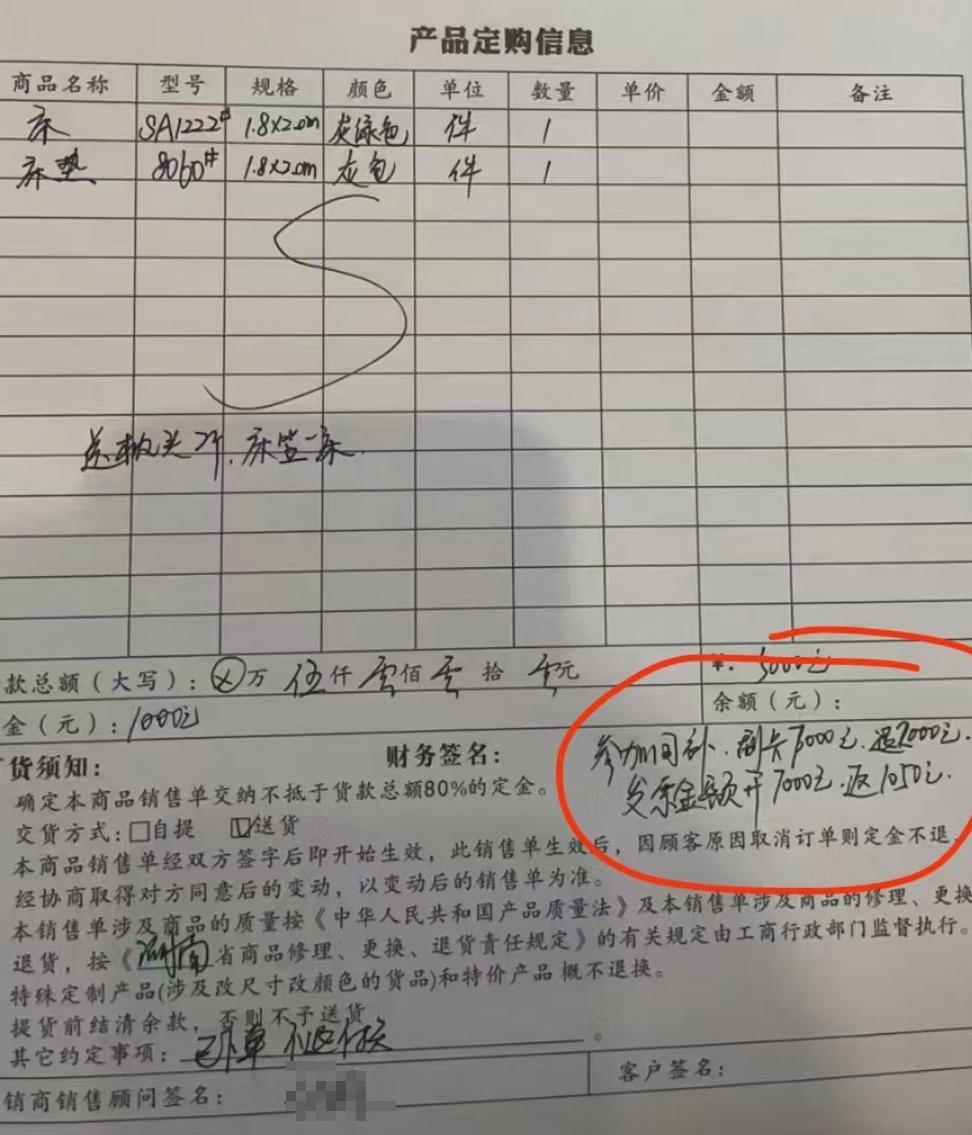 产品定购信息
商品名称 型号 规格 颜色 单位 数量 单价 金额 备注
床 SA1222# 1.8×2.0m 灰绿色 件 1
床垫 8060# 1.8×2.0m 灰色 件 1
送 床笠一床.
款总额（大写）：⊗万 伍仟 零佰 零拾 零元 ¥: 5000元
金（元）：1000元 余额（元）：
参加国补.刷卡7000元.退2000元.
发票金额开7000元.返1050元.
货须知： 财务签名：
确定本商品销售单交纳不抵于货款总额80%的定金。
交货方式：□自提 ☑送货
本商品销售单经双方签字后即开始生效，此销售单生效后，因顾客原因取消订单则定金不退，
经协商取得对方同意后的变动，以变动后的销售单为准。
本销售单涉及商品的质量按《中华人民共和国产品质量法》及本销售单涉及商品的修理、更换
退货，按《湖南省商品修理、更换、退货责任规定》的有关规定由工商行政部门监督执行。
特殊定制产品(涉及改尺寸改颜色的货品)和特价产品概不退换。
提货前结清余款，否则不予送货
其它约定事项：已下单 不退换。
销商销售顾问签名： 客户签名：